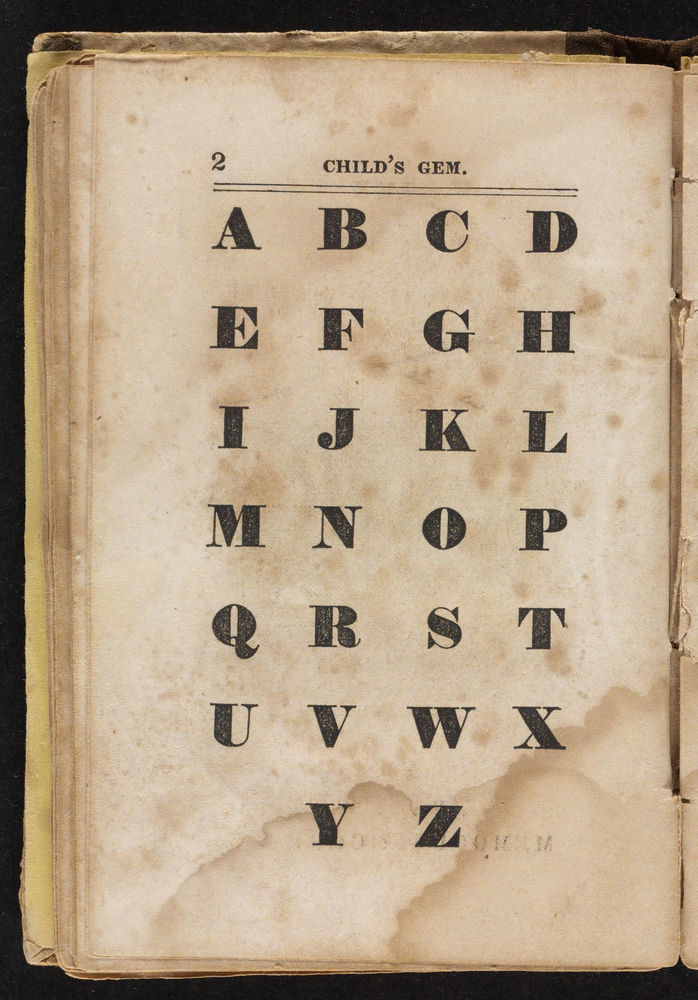 2 CHILD'S GEM.
A B C D
E F G H
I J K L
M N O P
Q R S T
U V W X
Y Z